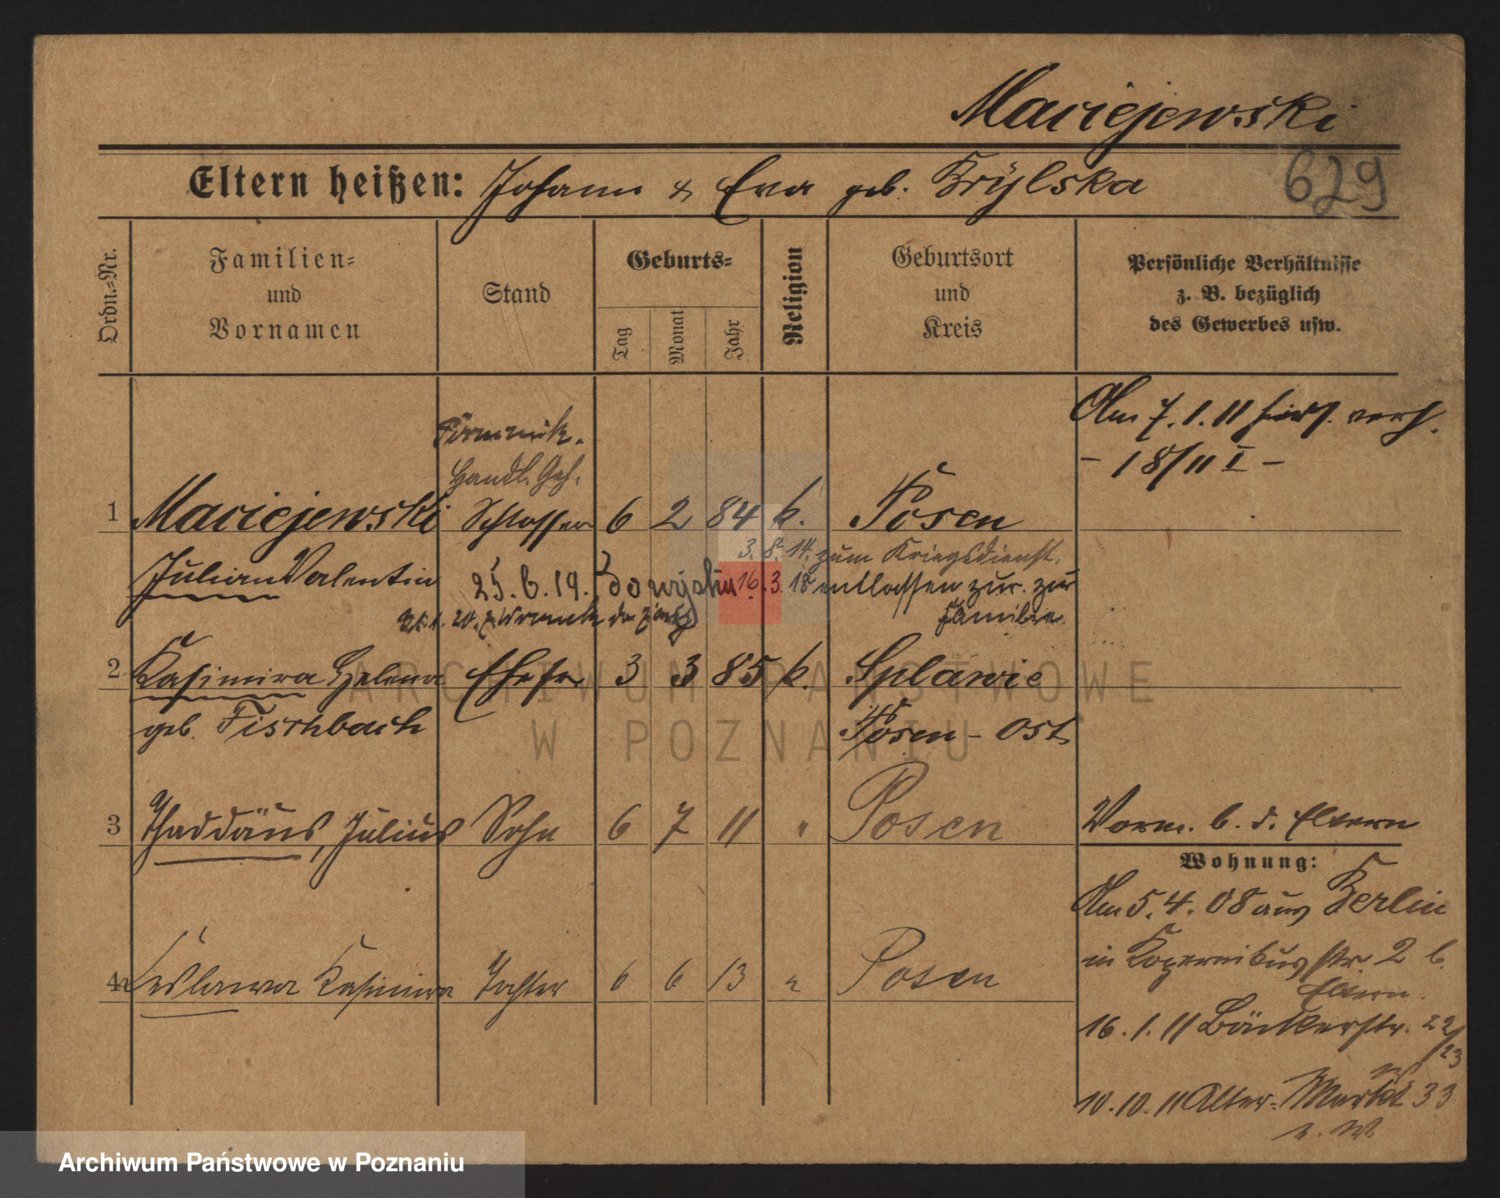 Maciejewski
Eltern heißen: Johann & Eva geb. Brylska
629
Ordn.=Nr.
Familien=
und
Vornamen
Stand
Geburts=
Tag
Monat
Jahr
Religion
Geburtsort
und
Kreis
Persönliche Verhältnisse
z. B. bezüglich
des Gewerbes usw.
Am 7.1.11 verh.
- 18/11 I -
Handl. Geh.
1 Maciejewski Schlosser 6 2 84 k. Posen
3.8.14. zum Kriegsdienst.
Julian Valentin 25.6.19. do wojska 16.3.18 entlassen zur. zur
Familie.
2 Kasimira Helena Ehefr 3 3 85 k. Splawie
geb. Fischbach Posen - Ost
3 Thaddäus, Julius Sohn 6 7 11 " Posen
Vorm. b. d. Eltern
Wohnung:
Am 5.4.08 aus Berlin
in Kopernikusstr. 2 b.
Eltern.
4 Ceslawa Kasimira Tochter 6 6 13 " Posen
16.1.11 Bäckerstr. 22/23
10.10.11 Alter-Markt 33
ARCHIWUM PAŃSTWOWE
W POZNANIU
Archiwum Państwowe w Poznaniu